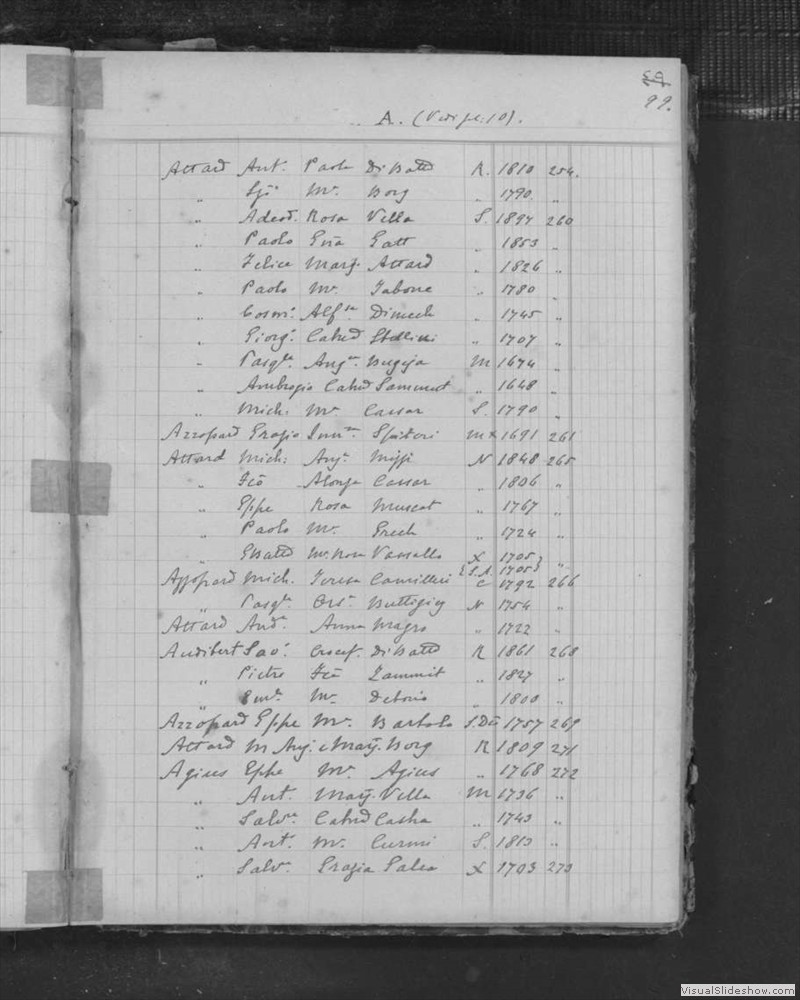 99.
A. (Vedi pg: 10).
Attard Ant. Paola Di Batta R. 1810 254.
„ Mª Borg „ 1790 „
„ Adeod. Rosa Vella S. 1894 260
„ Paolo Gatt „ 1853 „
„ Felice Marij. Attard „ 1826 „
„ Paolo Mª Tabone „ 1780 „
„ Cosmº Alfsa Dimech „ 1745 „
„ Giorgº Catnd Stellini „ 1707 „
„ Pasqle Angª Bugeja M 1674 „
„ Ambrogio Catnd Sammut „ 1648 „
„ Mich: Mª Cassar S. 1790 „
Azzopard Grazio Spiteri M X 1691 261
Attard Mich: Angª Mifsi N 1848 265
„ Alonza Cassar „ 1806 „
„ Gppe Rosa Muscat „ 1767 „
„ Paolo Mª Grech „ 1724 „
„ GBatta Mª Rosa Vassallo X 1705 „
S.A. 1705
Azzopard Mich. Teresa Camilleri C 1792 266
„ Pasqle Orsª Buttigieg N 1754 „
Attard Andª Anna Magro „ 1722 „
Audibert Savº Crocef. Di Batta R 1861 268
„ Pietro Zammit „ 1827 „
„ Emle Mª Debono „ 1800 „
Azzopard Gppe Mª Bartolo S. Dta 1757 269
Attard M Ang: Marij. Borg R 1809 271
Agius Gppe Mª Agius „ 1768 272
„ Ant. Marij. Vella M 1736 „
„ Salvre Catnd Casha „ 1743 „
„ Antº Mª Curmi S. 1813 „
„ Salvre Grazia X 1703 273
VisualSlideshow.com